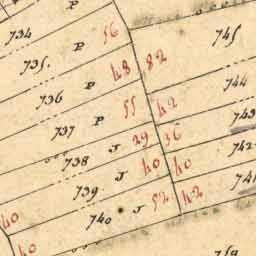 734 P 56
745
735. P 48 82
744
736 P 55 42
743
737 P 29 36
742
738 J 40 40
741
739 J 52 42
40
740 J
40